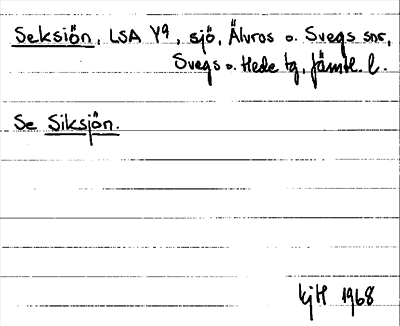 Seksiön, LSA Y9, sjö, Älvros o. Svegs snr,
Svegs o. Hede tg, Jämtl. l.
Se Siksjön.
kjH 1968